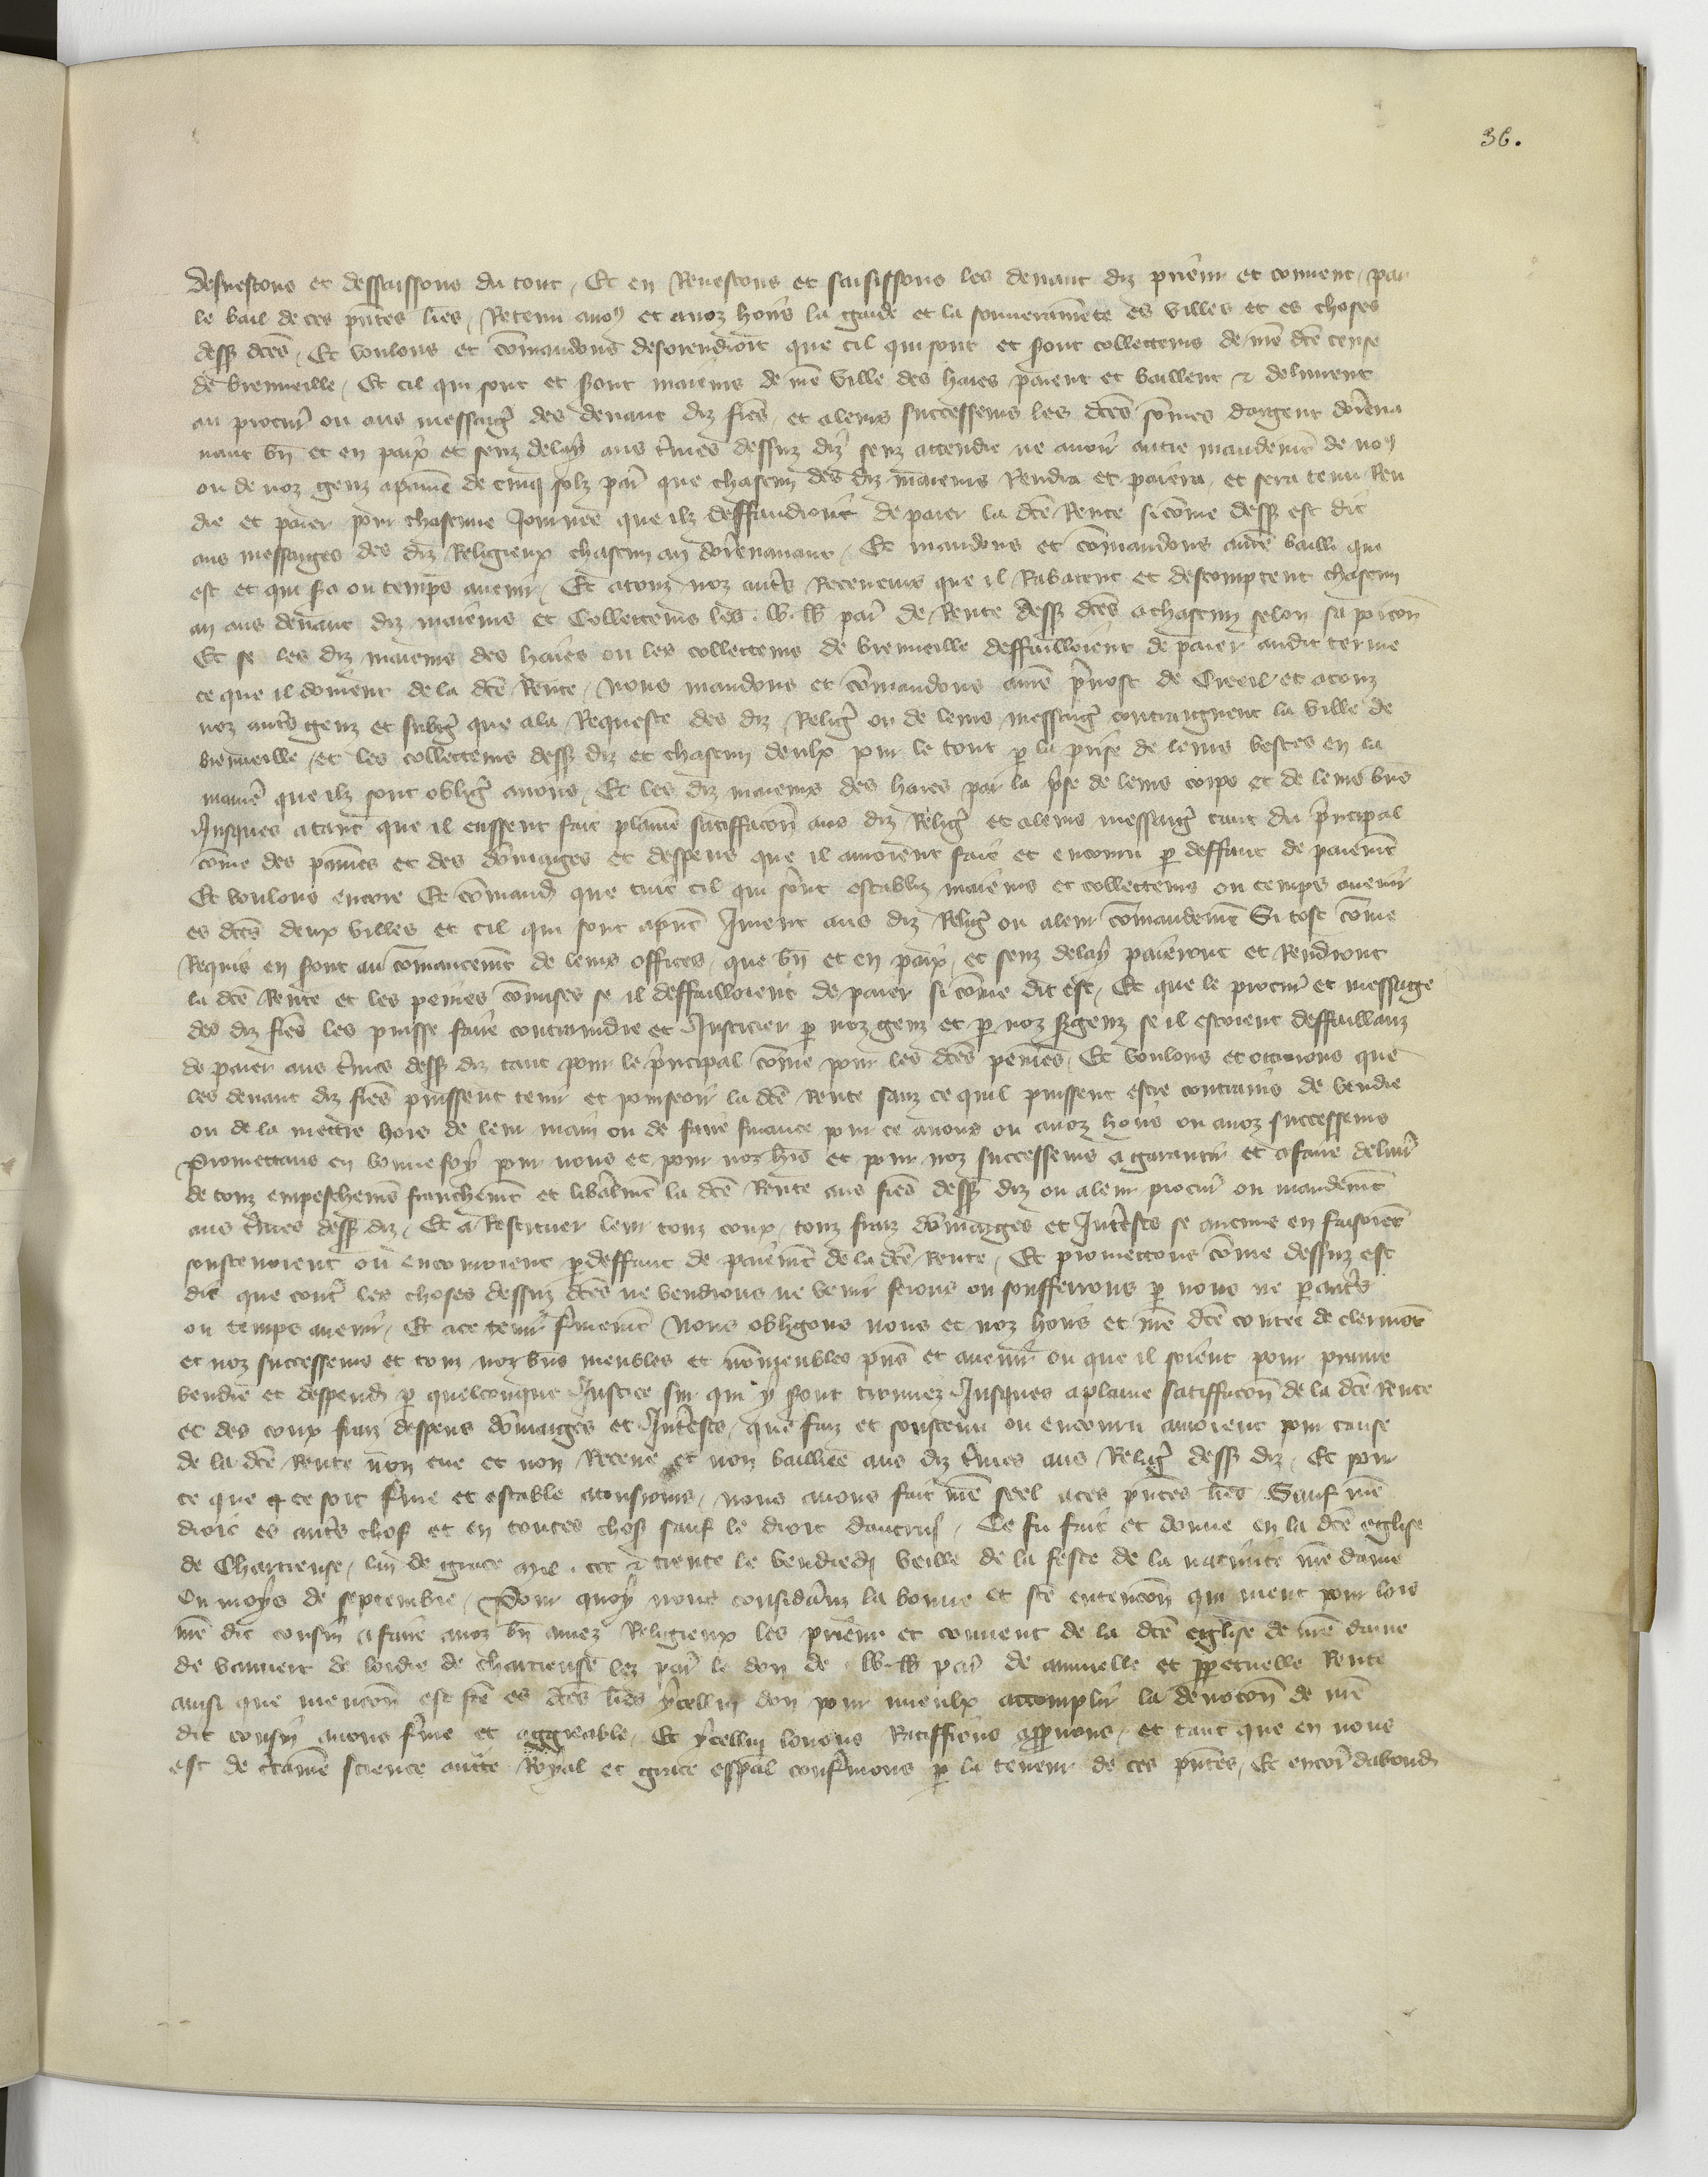 36.
desvestons et dessaisissons du tout, Et en Revestons et saisissons les devant diz prieur et convent, par
le bail de ces pñtes lr̃es, Retenu a noꝯ et a noz hoirs la garde et la souveraineté es villes et es choses
dess dc̃es, Et voulons et com̃andons desorendroit que cil qui sont et sont collecteurs de nr̃e dc̃e cense
de Brenueille, Et cil qui sont et sont maieurs de nr̃e ville des haies paient et baillent ⁊ delivrent
au procur̃ ou aus messaig̃ des devant diz fr̃es, et a leurs successeurs les dc̃es som̃es dargent dorena
vant bñ et en paix et senz delay aus t̃mes dessuz diz senz attendre ne avoir autre mandem̃t de noꝯ
ou de noz genz a paine de cinq solz par̃ que chascun des diz maieurs Rendra et paiera, et sera tenu Ren
dre et paier pour chascune Journee que ilz deffaudront de paier la dc̃e Rente si com̃e dess est dit
aus messaiges des diz Religieux chascun an dorenavant, Et mandons et com̃andons a nr̃e bailli qui
est et qui s̃a ou temps avenir, Et a touz noz aut̃s Receveurs que il Rabatent et descomptent chascun
an aus devant diz maieurs et Collecteurs les par̃ de Rente dess dc̃es a chascun selon sa porcõn
Et se les diz maieurs des haies ou les collecteurs de brenueille deffailloient de paier audit terme
ce que il doivent de la dc̃e Rente, Nous mandons et com̃andons a nr̃e p̃vost de Creeil et a touz
noz aut̃s genz et subg̃ que a la Requeste des diz Relig̃ ou de leurs messaig̃ contraignent la ville de
brenueille, et les collecteurs dess diz et chascun deulx pour le tout p̱ la prise de leurs bestes en la
manie᷑ que ilz sont oblig̃ a nous, Et les diz maieurs des haies par la p̃se de leurs corps et de leurs biẽs
Jusques a tant que il eussent fait plaine satiffacõn aus diz Relig̃ et a leurs messaig̃ tant du p̃ncipal
com̃e des paines et des dom̃aiges et despens que il auroient faiz et encouru p̱ deffaut de paiem̃t
Et voulons encore Et com̃and que tuit cil qui s̃ont establiz maieurs et collecteurs ou temps avenir
es dc̃es deux villes et cil qui sont a pñt Jurent aus diz Relig̃ ou a leur com̃andem̃t Si tost com̃e
Requis en s̃ont au com̃encem̃t de leurs offices, que bñ et en paix, et senz delay paieront et Rendront
la dc̃e Rente et les peines com̃ises se il deffailloient de paier si com̃e dit est, Et que le procur̃ et messaige
des diz fr̃es les puisse faire contraindre et Justicier p̱ noz genz et p̱ noz s̃genz se il estoient deffaillanz
de paier aus t̃mes dess diz tant pour le p̃ncipal com̃e pour les dc̃es peines, Et voulons et ottroions que
les devant diz fr̃es puissent tenir et pourseoir la dc̃e Rente sanz ce quil puissent estre contrains de vendre
ou de la mettre hors de leur main ou de faire finance pour ce a nous ou a noz hoirs ou a noz successeurs
Promettans en bonne foy pour nous et pour noz hoirs et pour noz successeurs a garantir et a faire delivr̃
de touz empeschem̃s franchem̃t et libalm̃t la dc̃e Rente aus fr̃es dess diz ou a leur procur̃ ou mandem̃t
aus t̃mes dess diz, Et a Restituer leur touz coux, touz fraiz dom̃aiges et Int̃ests se aucuns en faisoient
soustenoient ou encouroient p̱ deffaut de paiem̃t de la dc̃e Rente, Et promettons com̃e dessuz est
dit que cont̃ les choses dessuz dc̃es ne vendrons ne venir ferons ou soufferrons p̱ nous ne p̱ aut̃s
ou temps avenir, Et a ce tenir f̃mem̃t Nous obligons nous et noz hoirs et nr̃e dc̃e contee de clermõt
et noz successeurs et touz noz biẽs meubles et nõmeubles pñs et avenir ou que il soient pour prenre
vendre et despend p̱ quelconque Justice sur qui y s̃ont trouvez Jusques a plaine satiffacõn de la dc̃e Rente
et des coux fraiz despens dom̃aiges et Int̃ests, que faiz et soustenu ou encouru auroient pour cause
de la dc̃e Rente non eue et non Receue et non bailliée aus diz t̃mes aus Relig̃ dess diz, Et pour
ce que ce soit f̃me et estable a tousiours, nous avons fait nr̃e seel a ces pñtes lr̃es Sauf nr̃e
droit es aut̃s chos et en toutes chos sauf le droit dautruj, Ce fu fait et donne en la dc̃e eglise
de Chartreuse, lan de grace mil ccc ⁊ trente le vendredj veille de la feste de la nativite nr̃e dame
Ou moys de septembre, Pour quoy nous considãnz la bonne et ste entencõn qui ment pour lors
nr̃e dit cousin a faire a noz bñ amez Religieux les prieur et convent de la dc̃e eiglise de nr̃e dame
de vauvert de lordre de chartreuse lez par̃ le don de par̃ de annuelle et p̱petuelle Rente
ainsi que mencõn est fc̃e es dc̃es lr̃es ycellui don pour mieulx acomplir la devocõn de nr̃e
dit cousin avons f̃me et aggreable, Et ycellui louons Ratiffions app̃uvons, et tant que en nous
est de c̃taine science auc̃te Royal et grace esp̃al conf̃mons p̱ la teneur de ces pñtes, Et encor̃ dabond